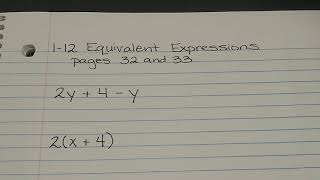 1-12 Equivalent Expressions
pages 32 and 33
2y + 4 - y
2(x + 4)